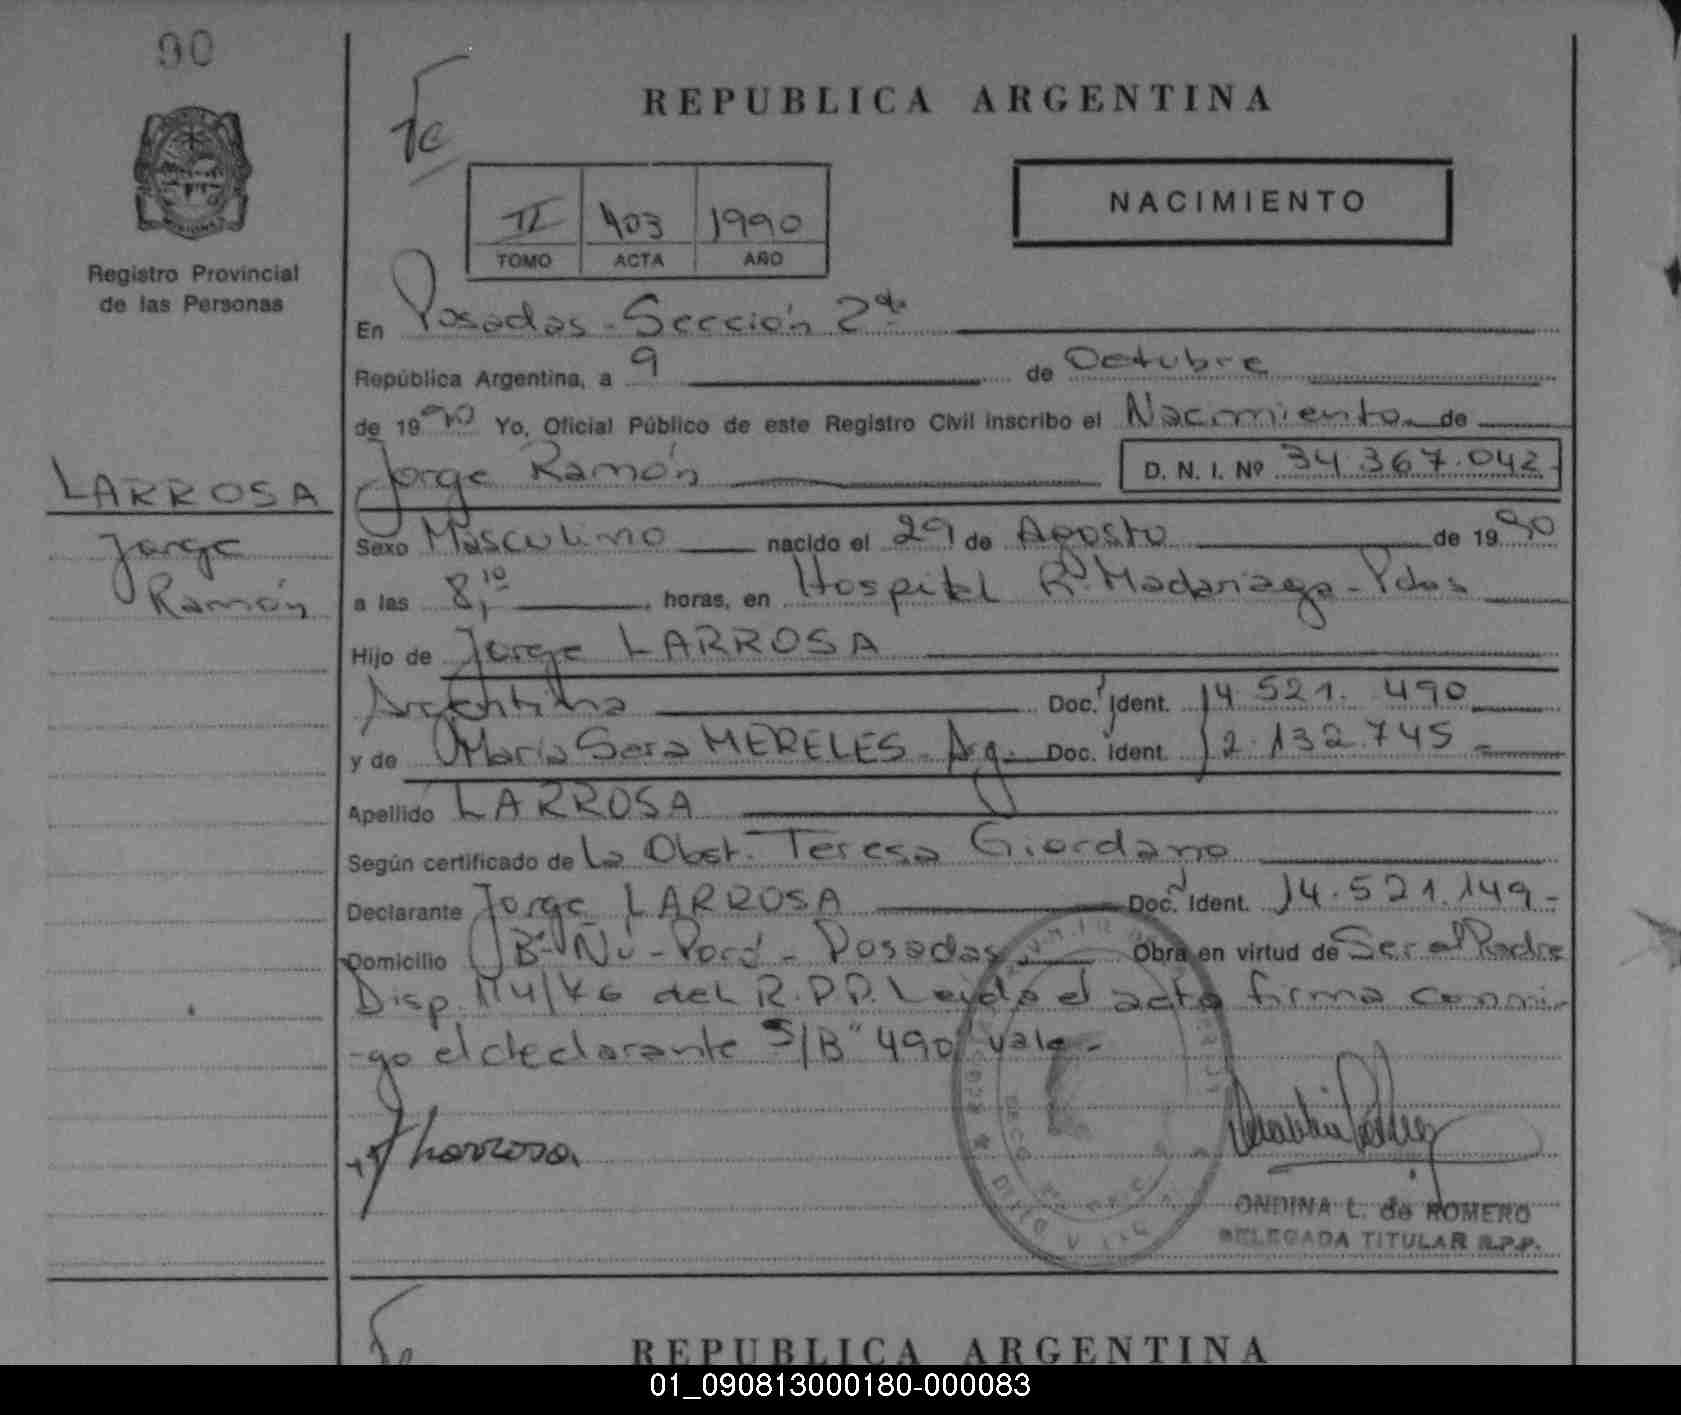 90
REPUBLICA ARGENTINA
NACIMIENTO
II 403 1990
TOMO ACTA AÑO
Registro Provincial
de las Personas
En Posadas - Sección 2da
República Argentina, a 9 de Octubre
de 1990 Yo, Oficial Público de este Registro Civil inscribo el Nacimiento de
Jorge Ramón D. N. I. Nº 34.367.042
LARROSA
Jorge
Ramón
Sexo Masculino nacido el 29 de Agosto de 1990
a las 8,10 horas, en Hospital R. Madariaga - Pdas
Hijo de Jorge LARROSA
Argentina Doc. Ident. 14.521.490
y de María Sara MERELES - Arg. Doc. Ident. 12.132.745
Apellido LARROSA
Según certificado de La Obst. Teresa Giordano
Declarante Jorge LARROSA Doc. Ident. 14.521.149 -
Domicilio Bº Ñu - Porá - Posadas Obra en virtud de Ser el Padre
Disp. 114/76 del R.P.P. Leida el acta firma conmi-
-go el declarante S/B "490" vale -
J Larrosa
ONDINA L. de ROMERO
DELEGADA TITULAR R.P.P.
REPUBLICA ARGENTINA
01_090813000180-000083